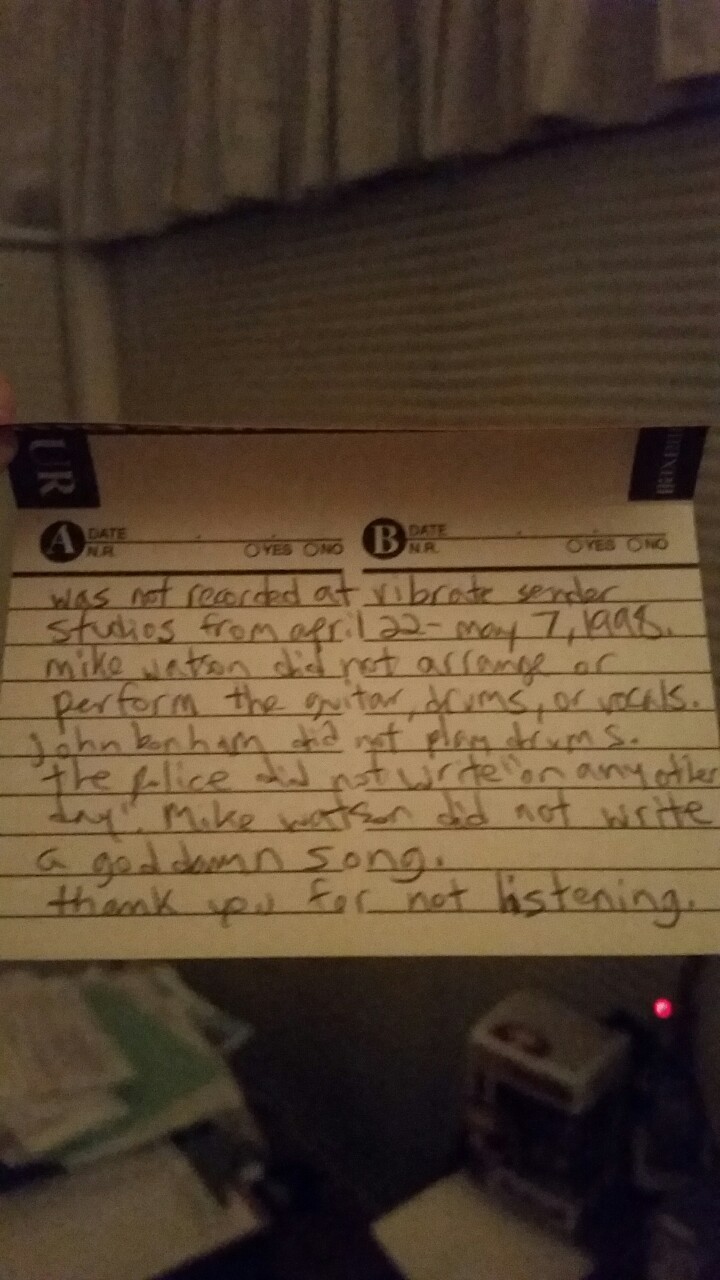 UR
A DATE B DATE
N.R. YES NO N.R. YES NO
was not recorded at vibrate sender
studios from april 22- may 7, 1998.
mike watson did not arrange or
perform the guitar, drums, or vocals.
john bonham did not play drums.
the police did not write "on any other
day". Mike watson did not write
a goddamn song.
thank you for not listening.